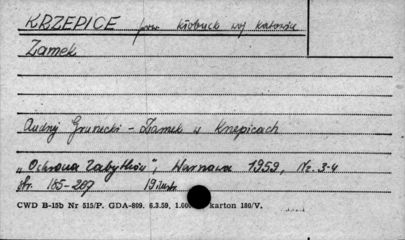 KRZEPICE pow Kłobuck woj Katowice
Zamek
Andrzej Gruszecki - Zamek w Krzepicach
„Ochrona Zabytków", Warszawa 1959, Nr. 3-4
Str. 185-207 19 ilustr.
CWD B-15b Nr 515/P. GDA-809. 6.3.59, 1.000 karton 180/V.